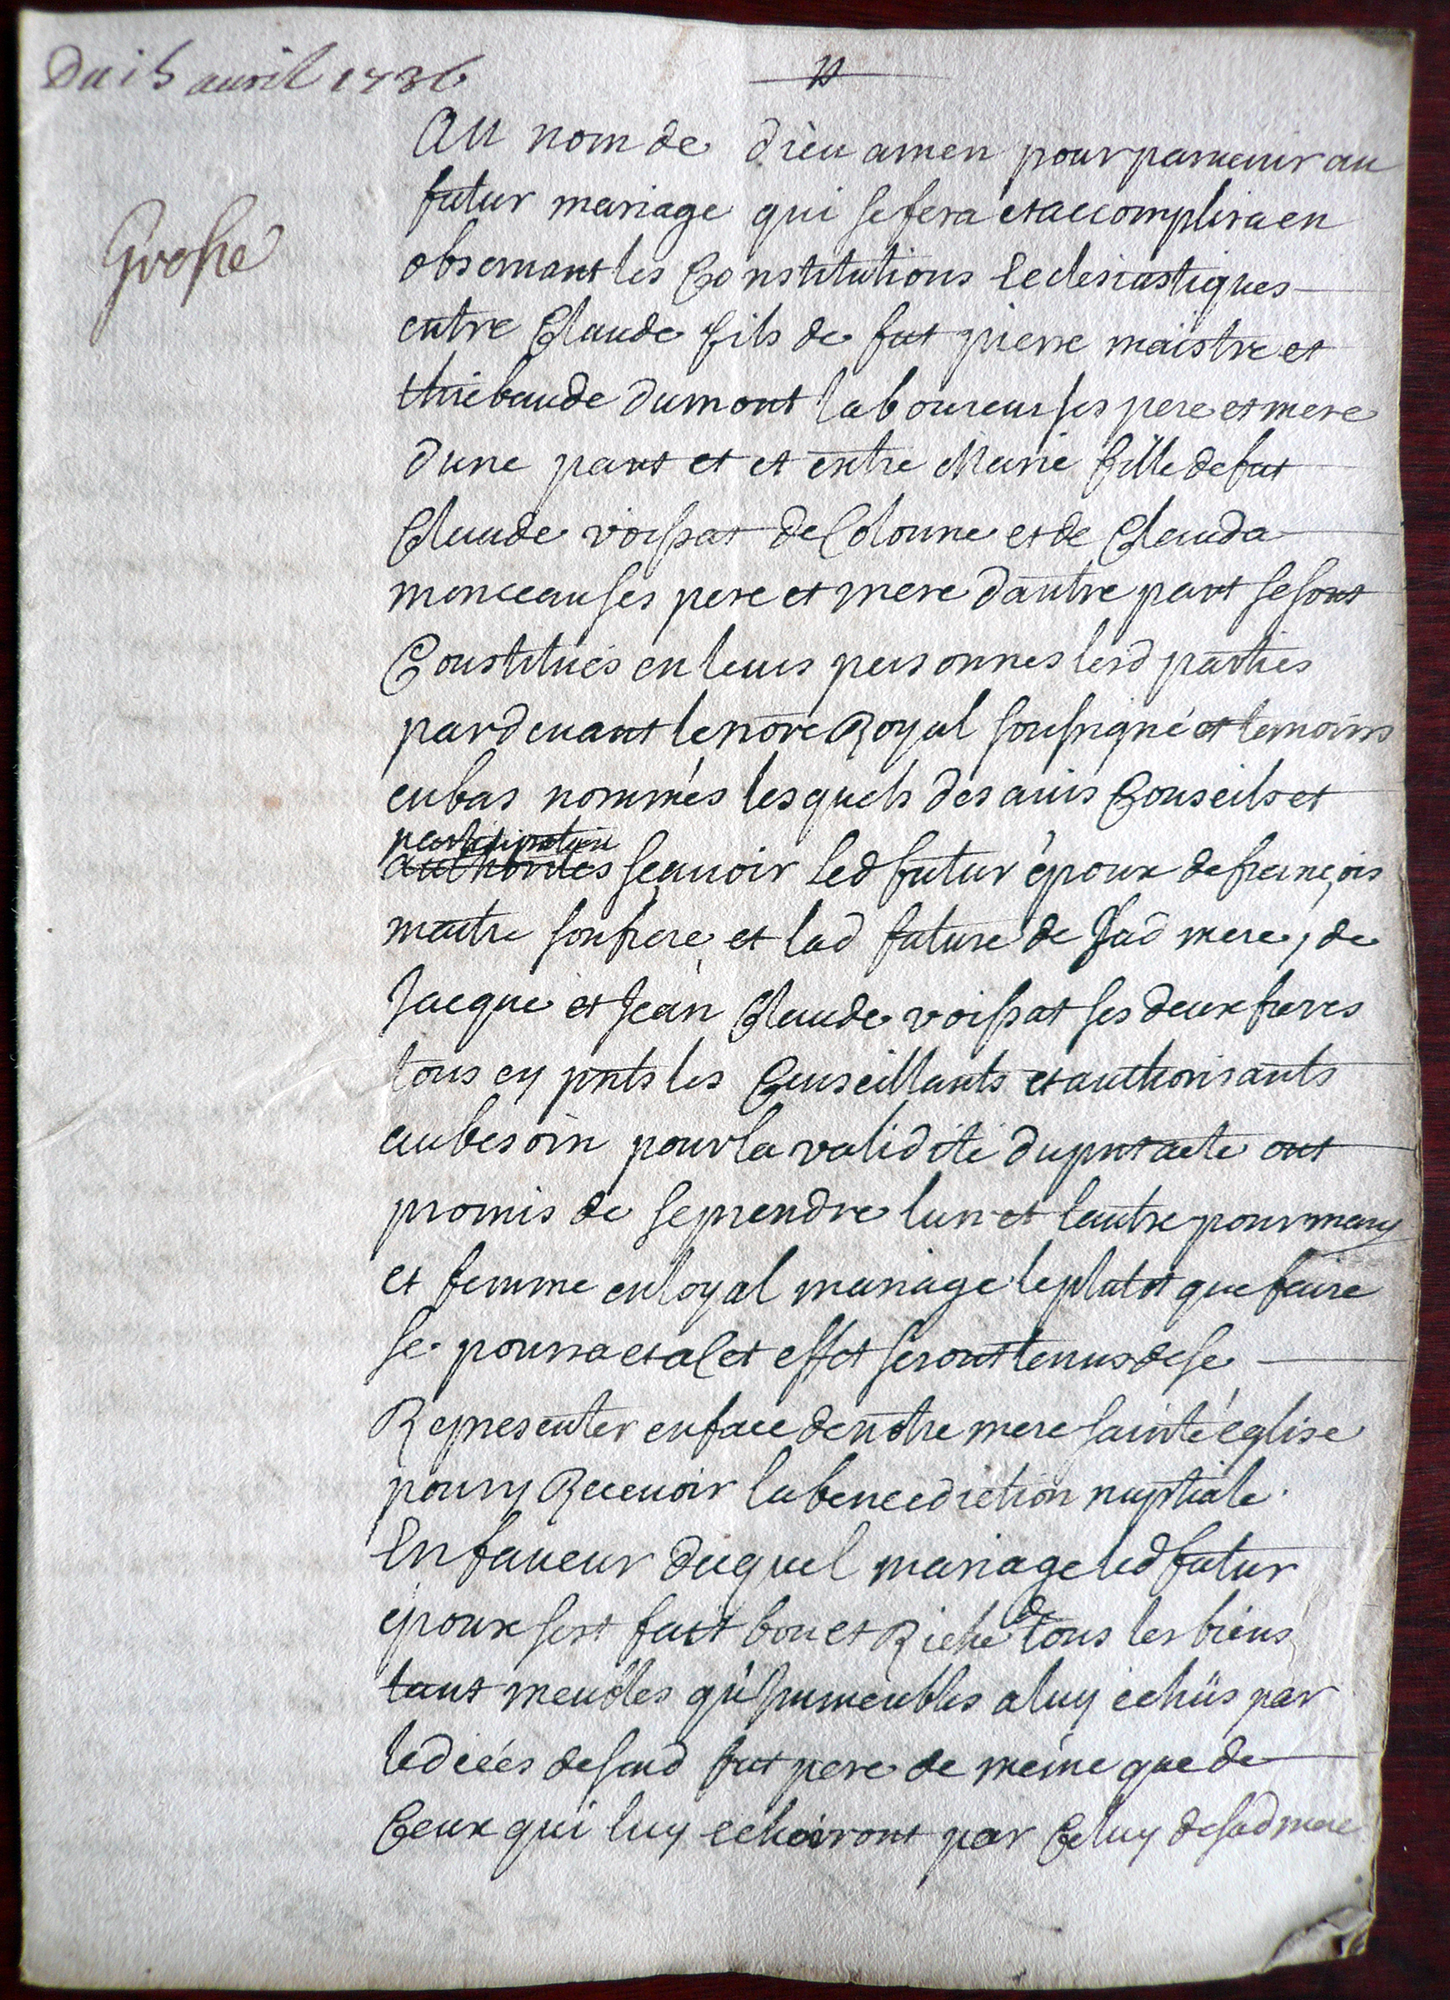 Du 15 avril 1736
Au nom de dieu amen pour parvenir au
Grosse
futur mariage qui se fera et accomplira en
observant les Constitutions Eclesiastiques
entre Claude fils de fut pierre maistre et
thiebaude dumont laboureur ses pere et mere
dune part et et entre Marie fille de fut
Claude voissat de Colonne et de Clauda
monceau ses pere et mere dautre part se sont
Constitués en leurs personnes lesd parties
pardevant le nore Royal soussigné et temoins
en bas nommés lesquels des avis Conseils et
participation
authorités scavoir led futur époux de françois
maitre son frere et lad future de sad mere, de
Jacque et Jean Claude voissat ses deux freres
tous cy pnts les Conseillants et authorisants
au besoin pour la validité du pnt acte ont
promis de se prendre lun et lautre pour mary
et femme en loyal mariage le plutot que faire
se pourra et a Cet effet seront tenus de se
Representer en face de notre mere sainte église
pour y Recevoir la benediction nuptiale.
En faveur duquel mariage led futur
époux sest fait bon et Riche de tous les biens
tant meubles qu'Immeubles a luy echüs par
le décés de sond fut pere de méme que de
Ceux qui luy echoiront par Celuy de sad mere